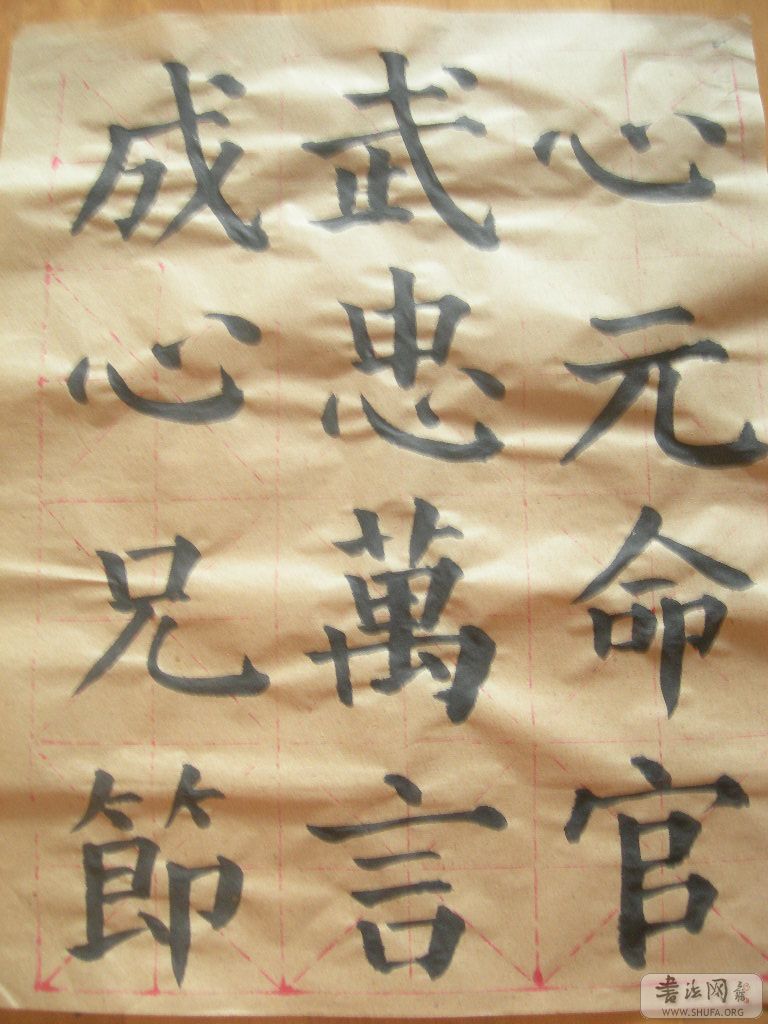 心元命官
武忠萬言
成心兄節
書法网
WWW.SHUFA.ORG